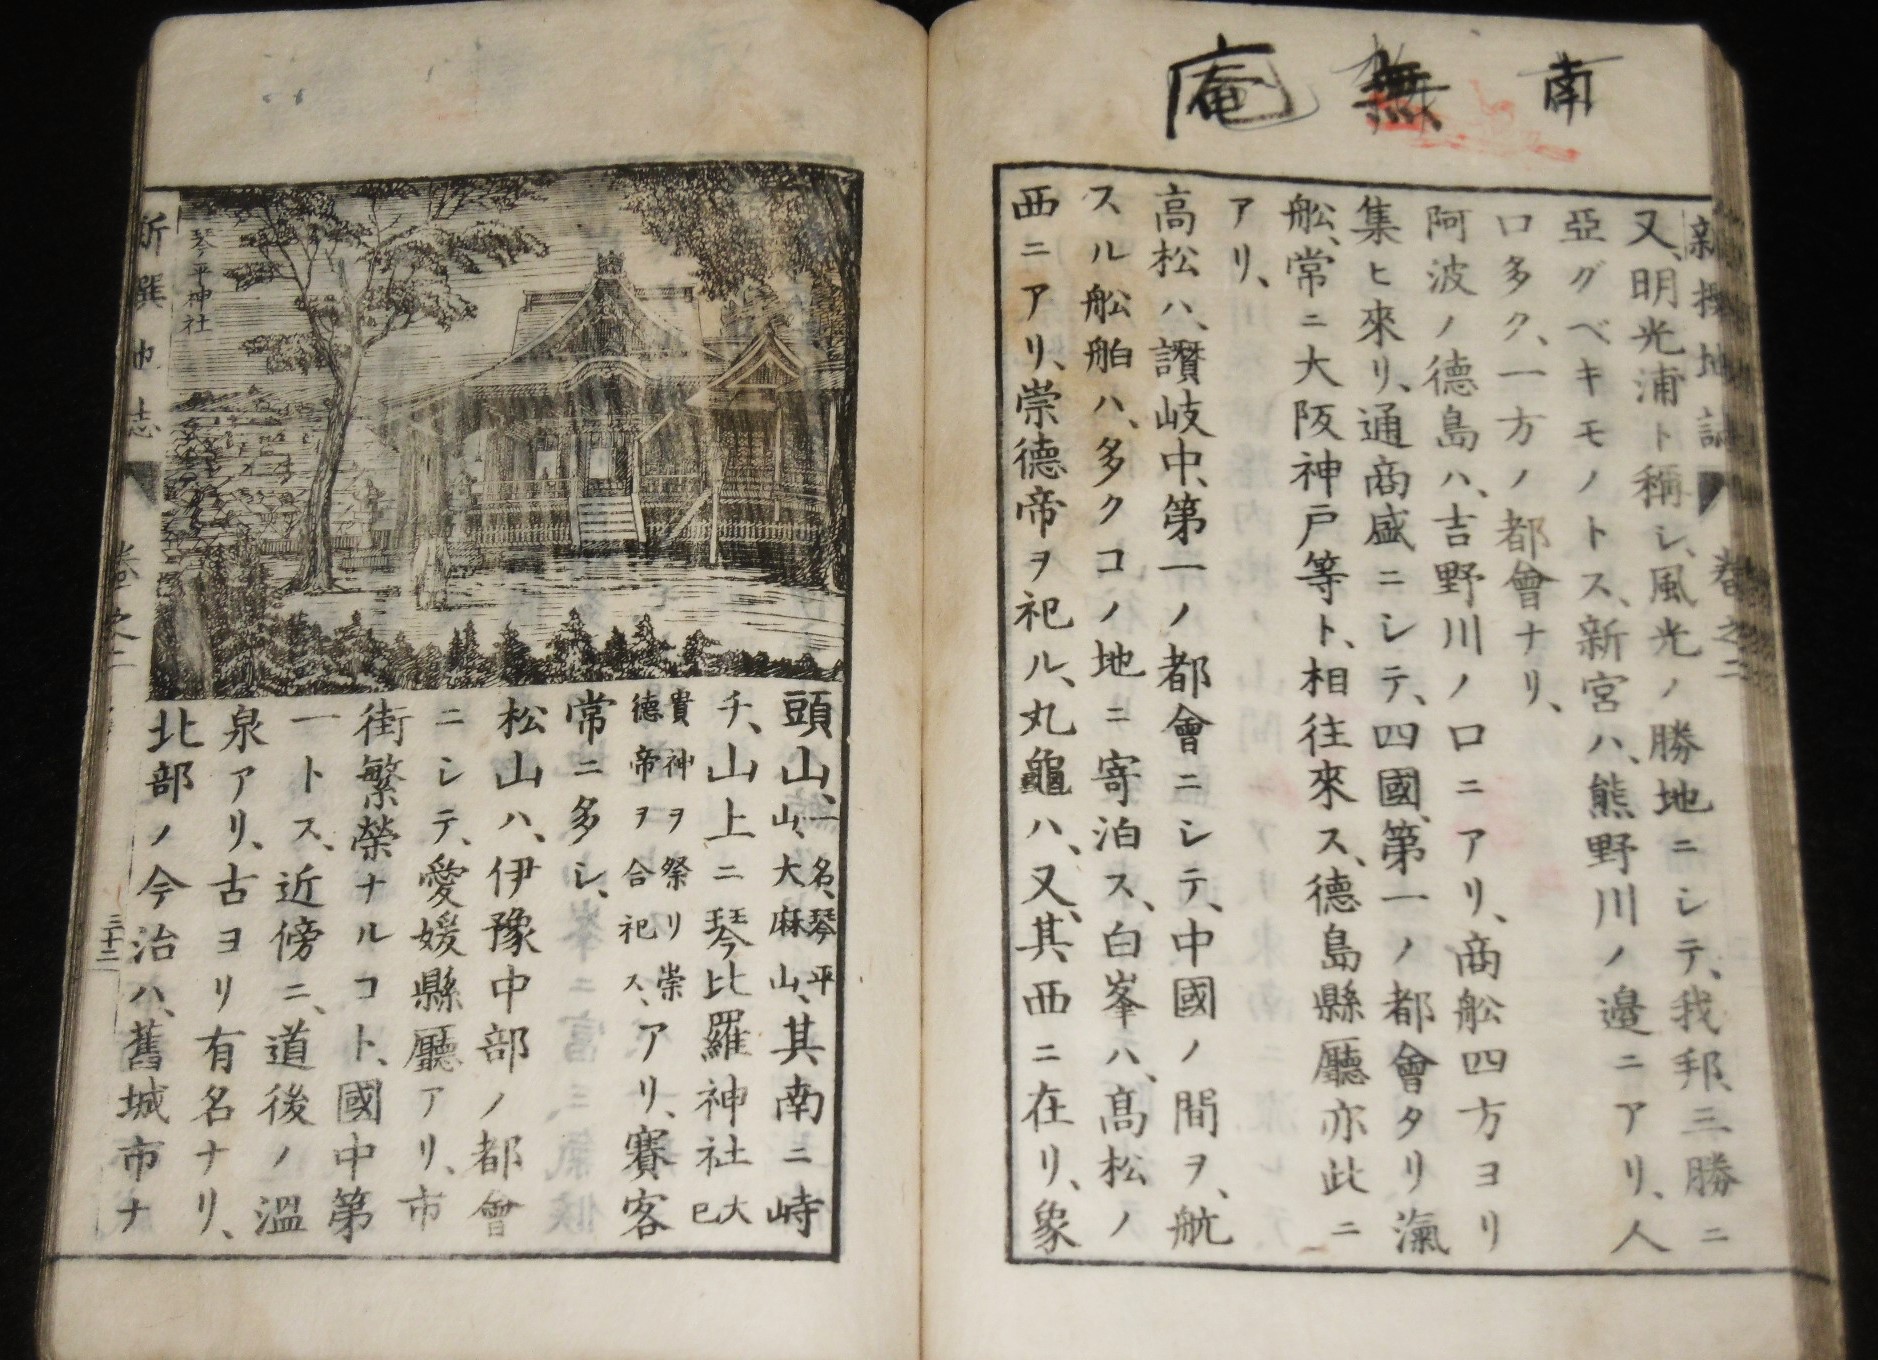 南無庵
新撰地誌 卷之二
又、明光浦ト稱シ、風光ノ勝地ニシテ、我邦三勝ニ
亞グベキモノトス、新宮ハ、熊野川ノ邊ニアリ、人
口多ク、一方ノ都會ナリ、
阿波ノ德島ハ、吉野川ノ口ニアリ、商舩四方ヨリ
集ヒ來リ、通商盛ニシテ、四國、第一ノ都會タリ滊
舩、常ニ大阪神戸等ト、相往來ス、德島縣廳亦此ニ
アリ、
高松ハ、讃岐中、第一ノ都會ニシテ、中國ノ間ヲ、航
スル舩舶ハ、多クコノ地ニ寄泊ス、白峯ハ、髙松ノ
西ニアリ、崇德帝ヲ祀ル、丸龜ハ、又、其西ニ在リ、象
琴平神社
頭山、一名、琴平山、大麻山、其南ニ峙
チ、山上ニ琴比羅神社大已
貴神ヲ祭リ崇德帝ヲ合祀ス、アリ、賽客
常ニ多シ、
松山ハ、伊豫中部ノ都會
ニシテ、愛媛縣廳アリ、市
街繁榮ナルコト、國中第
一トス、近傍ニ、道後ノ溫
泉アリ、古ヨリ有名ナリ、
北部ノ今治ハ、舊城市ナ
新撰地志 卷之二
三十二